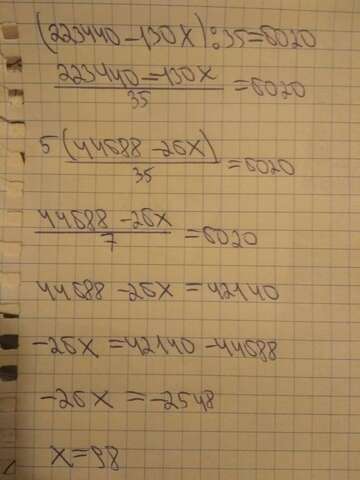 (223440-130x):35=6020
223440-130x
35
=6020
5(44688-26x)
35
=6020
44688-26x
7
=6020
44688-26x=42140
-26x=42140-44688
-26x=-2548
x=98